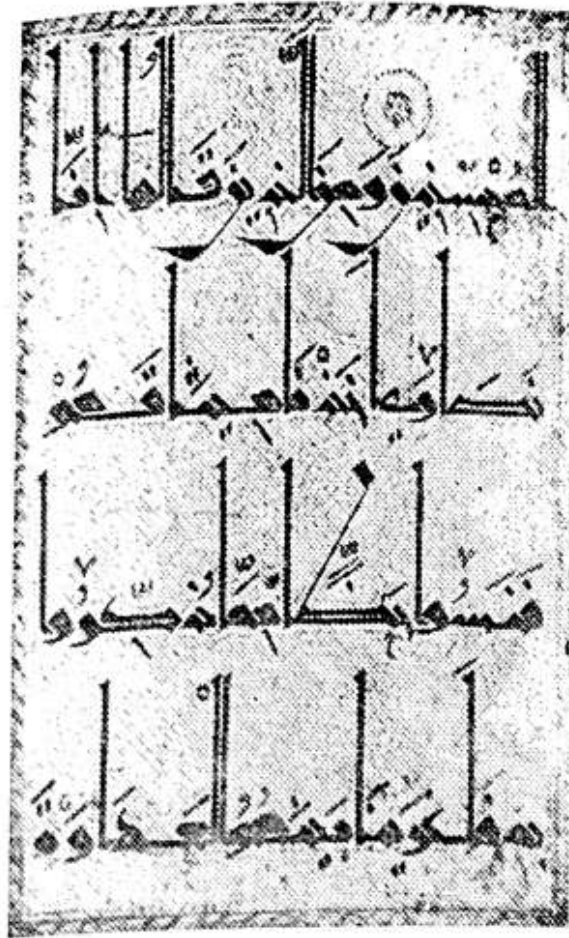 الْمُحْسِنِينَ وَمِنَ الَّذِينَ قَالُوا إِنَّا
نَصَارَى أَخَذْنَا مِيثَاقَهُمْ
فَنَسُوا حَظًّا مِمَّا ذُكِّرُوا
بِهِ فَأَغْرَيْنَا بَيْنَهُمُ الْعَدَاوَةَ